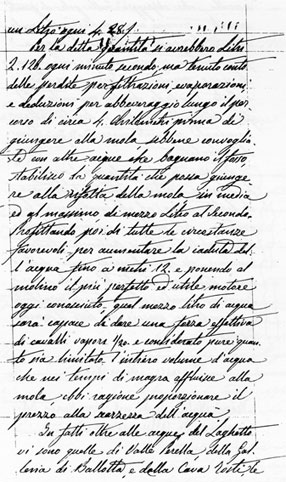 un Litro ogni 4. 28.1.
Per la detta quantità si avrebbero Litri
2.128 ogni minuto secondo, ma tenuto conto
delle perdite per filtrazioni, evaporazioni
e deduzioni per abbeveraggio lungo il per
corso di circa 4. Chilometri prima di
giungere alla mola sebbene convoglia
te con altre acque che bagnano il fosso
stabilisco la quantità che possa giunge
re alla rifatta della mola, in media
ed al massimo di mezzo Litro al Secondo.
Profittando poi di tutte le circostanze
favorevoli per aumentare la caduta del
l'acqua fino a metri 12. e ponendo al
molino il più perfetto ed utile motore
oggi conosciuto, qual mezzo litro di acqua
sarà capace di dare una forza effettiva
di cavalli vapore e considerato pure quan
to sia limitato l'intiero volume d'acqua
che nei tempi di magra affluisce alla
mola, ebbi ragione proporzionare il
prezzo alla scarsezza dell'acqua.
In fatti oltre alle acque del Laghetto
vi sono quelle di Valle della Sol
di Ballotta, e dalla Cava